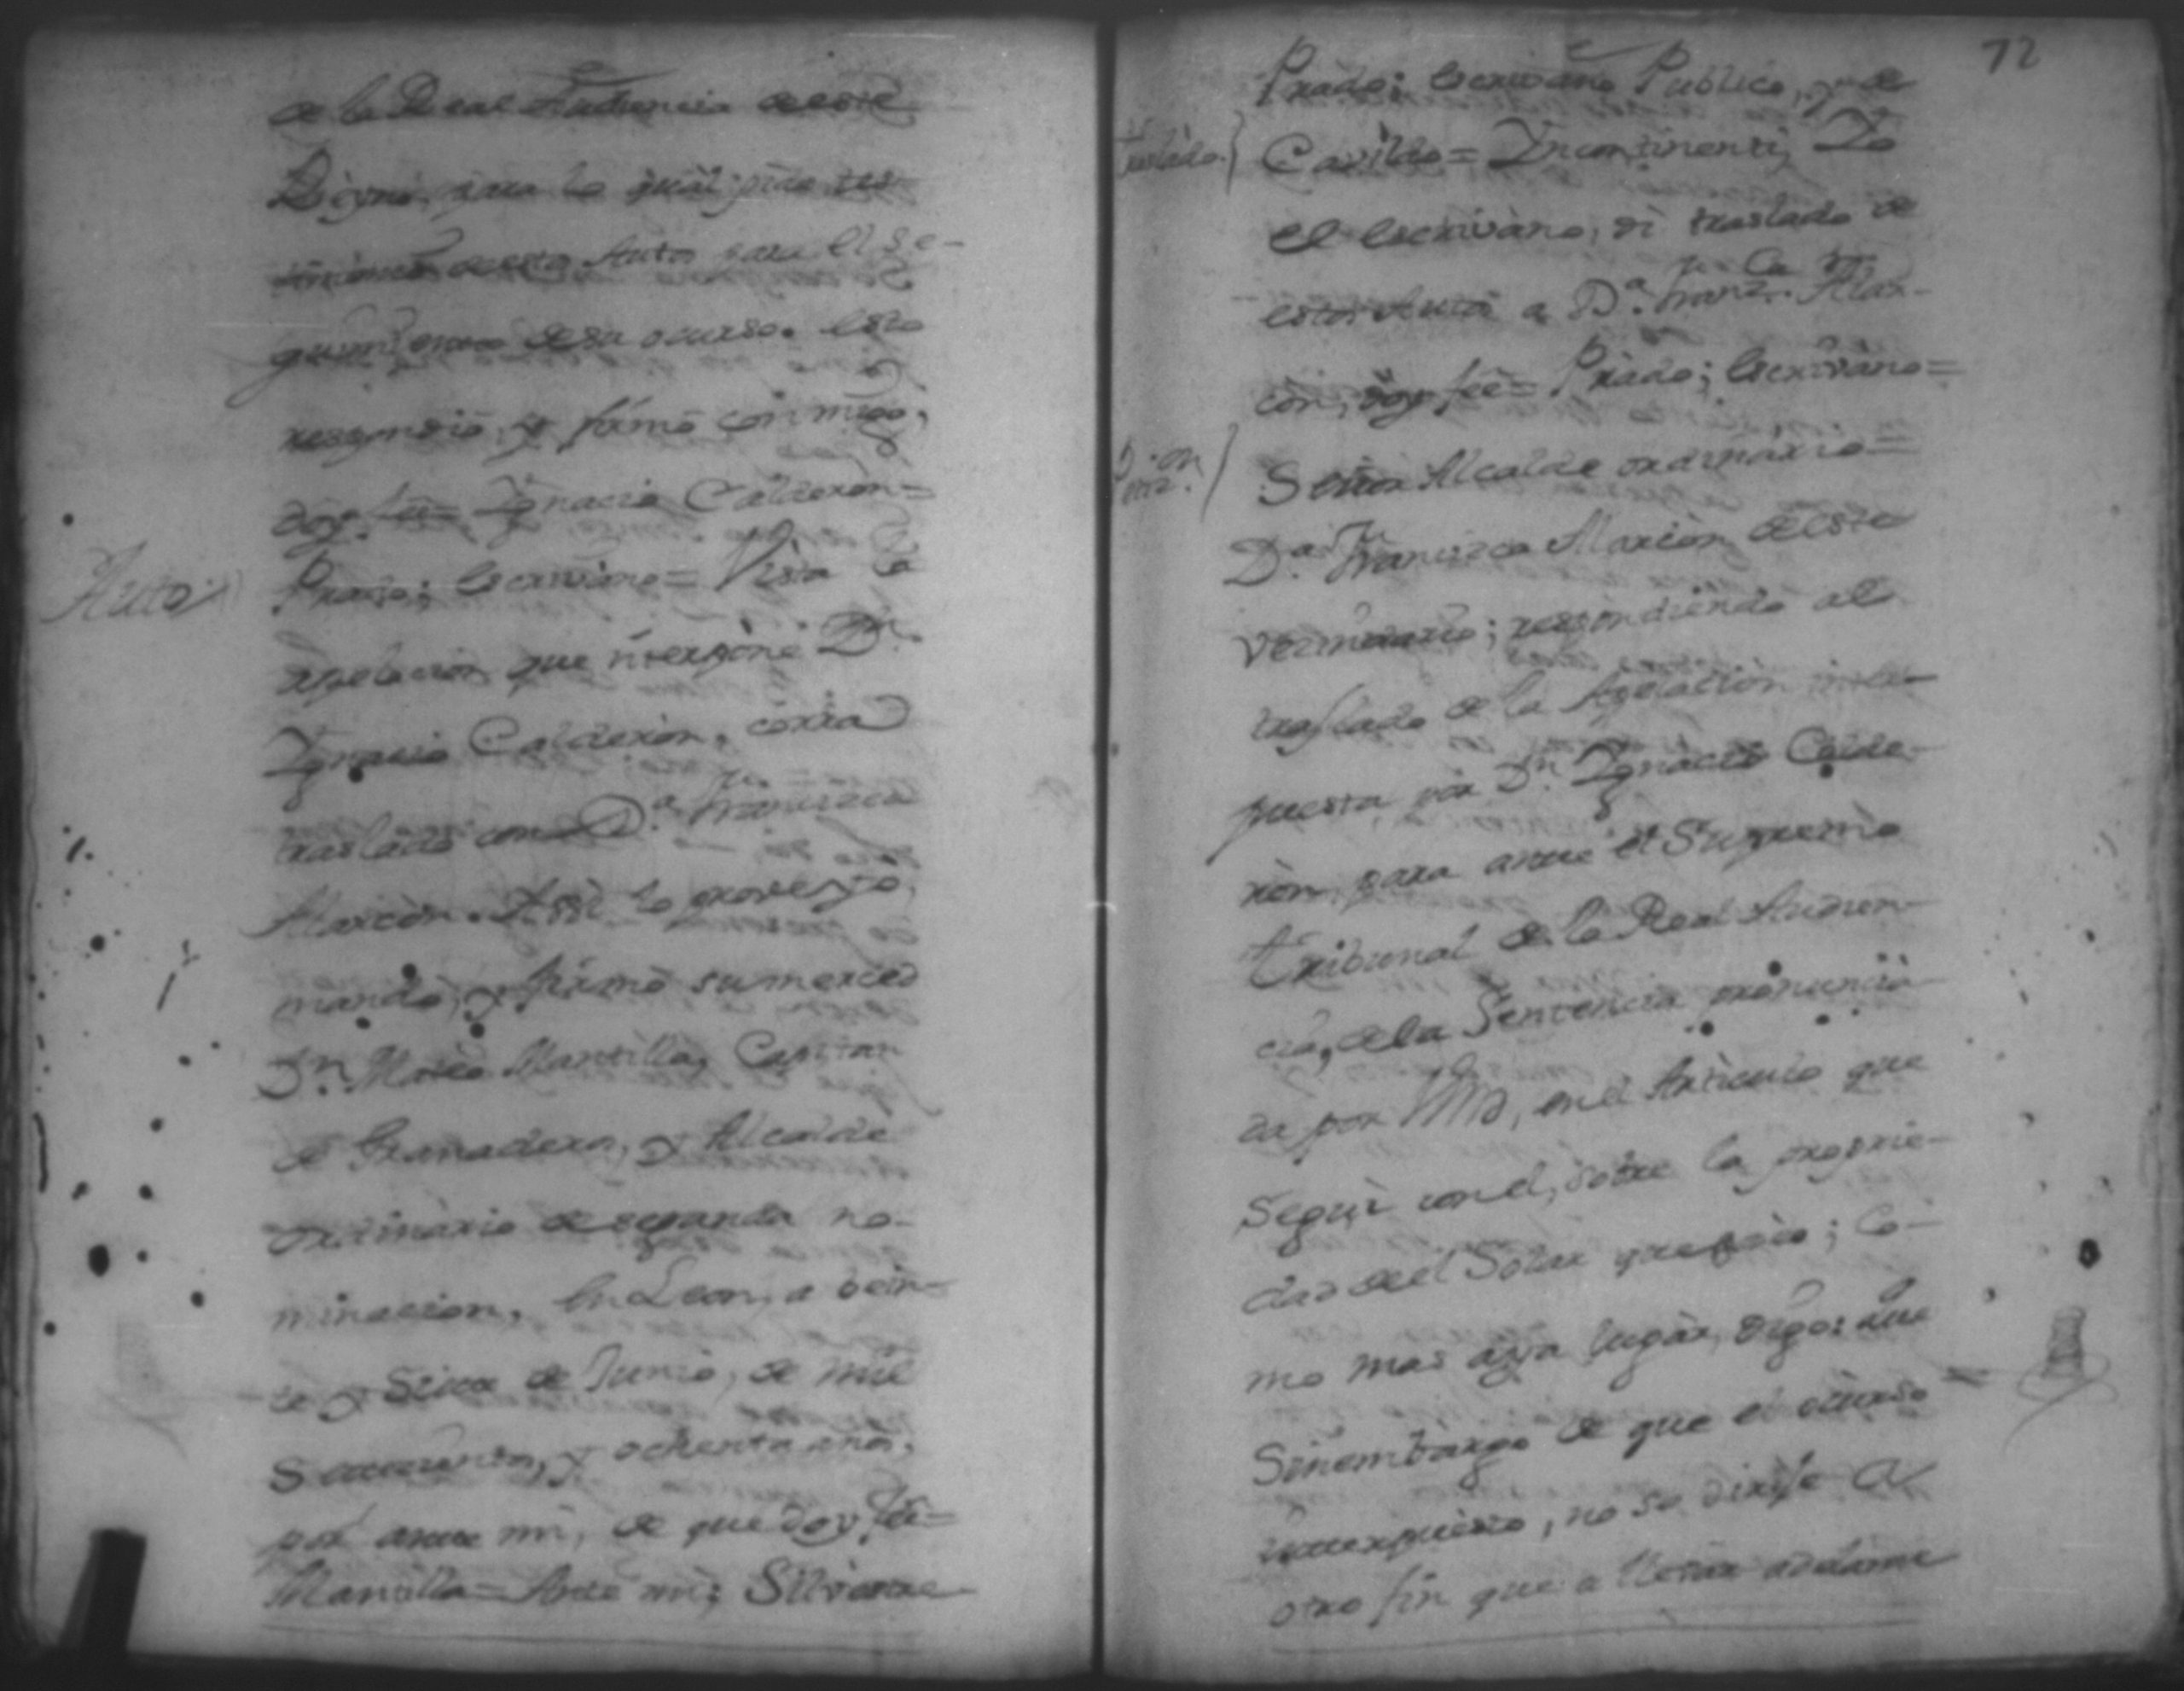 de la Real Audiencia de este
Reyno. para lo qual pido tes-
timonio de estos Autos para el se-
guimiento de su ocurso. Esto
respondio, y firmó conmigo,
doy feé= Ygnacio Calderon=
Auto.
Prado; Escrivano= Vista la
apelacion que interpone Dn.
Ygnacio Calderon, corra
traslado con Da. Francisca
Alarcòn. Assi lo proveyó,
mandó, y firmó su merced
Dn. Mateo Mantilla, Capitan
de Granaderos, y Alcalde
ordinario de segunda no-
minacion. En Leon, a vein-
te y Siete de Junio, de mil
Setecientos, y ochenta años,
por ante mi, de que doy feé=
Mantilla= Ante mi; Silvestre
72
Prado; Escrivano Publico, y de
traslado.
Cavildo= Yncontinenti, Yo
el Escrivano, di traslado de
estos Autos a Da. Franca. Alar-
còn, doy feé= Prado; Escrivano=
Peticion.
Señor Alcalde ordinario=
Da. Francisca Alarcòn de este
vecindario; respondiendo al
traslado de la Apelacion inter-
puesta por Dn. Ygnacio Calde-
ròn, para ante el Supremo
tribunal de la Real Audien-
cia, de la Sentencia pronuncia-
da por Vmd, en el Articulo que
Seguì con el, sobre la proprie-
dad de el Solar que ; Co-
mo mas aya lugar, digo: que
Sinembargo de que el ocurso
interpuesto, no se dirije a
otro fin que a llevar adelante